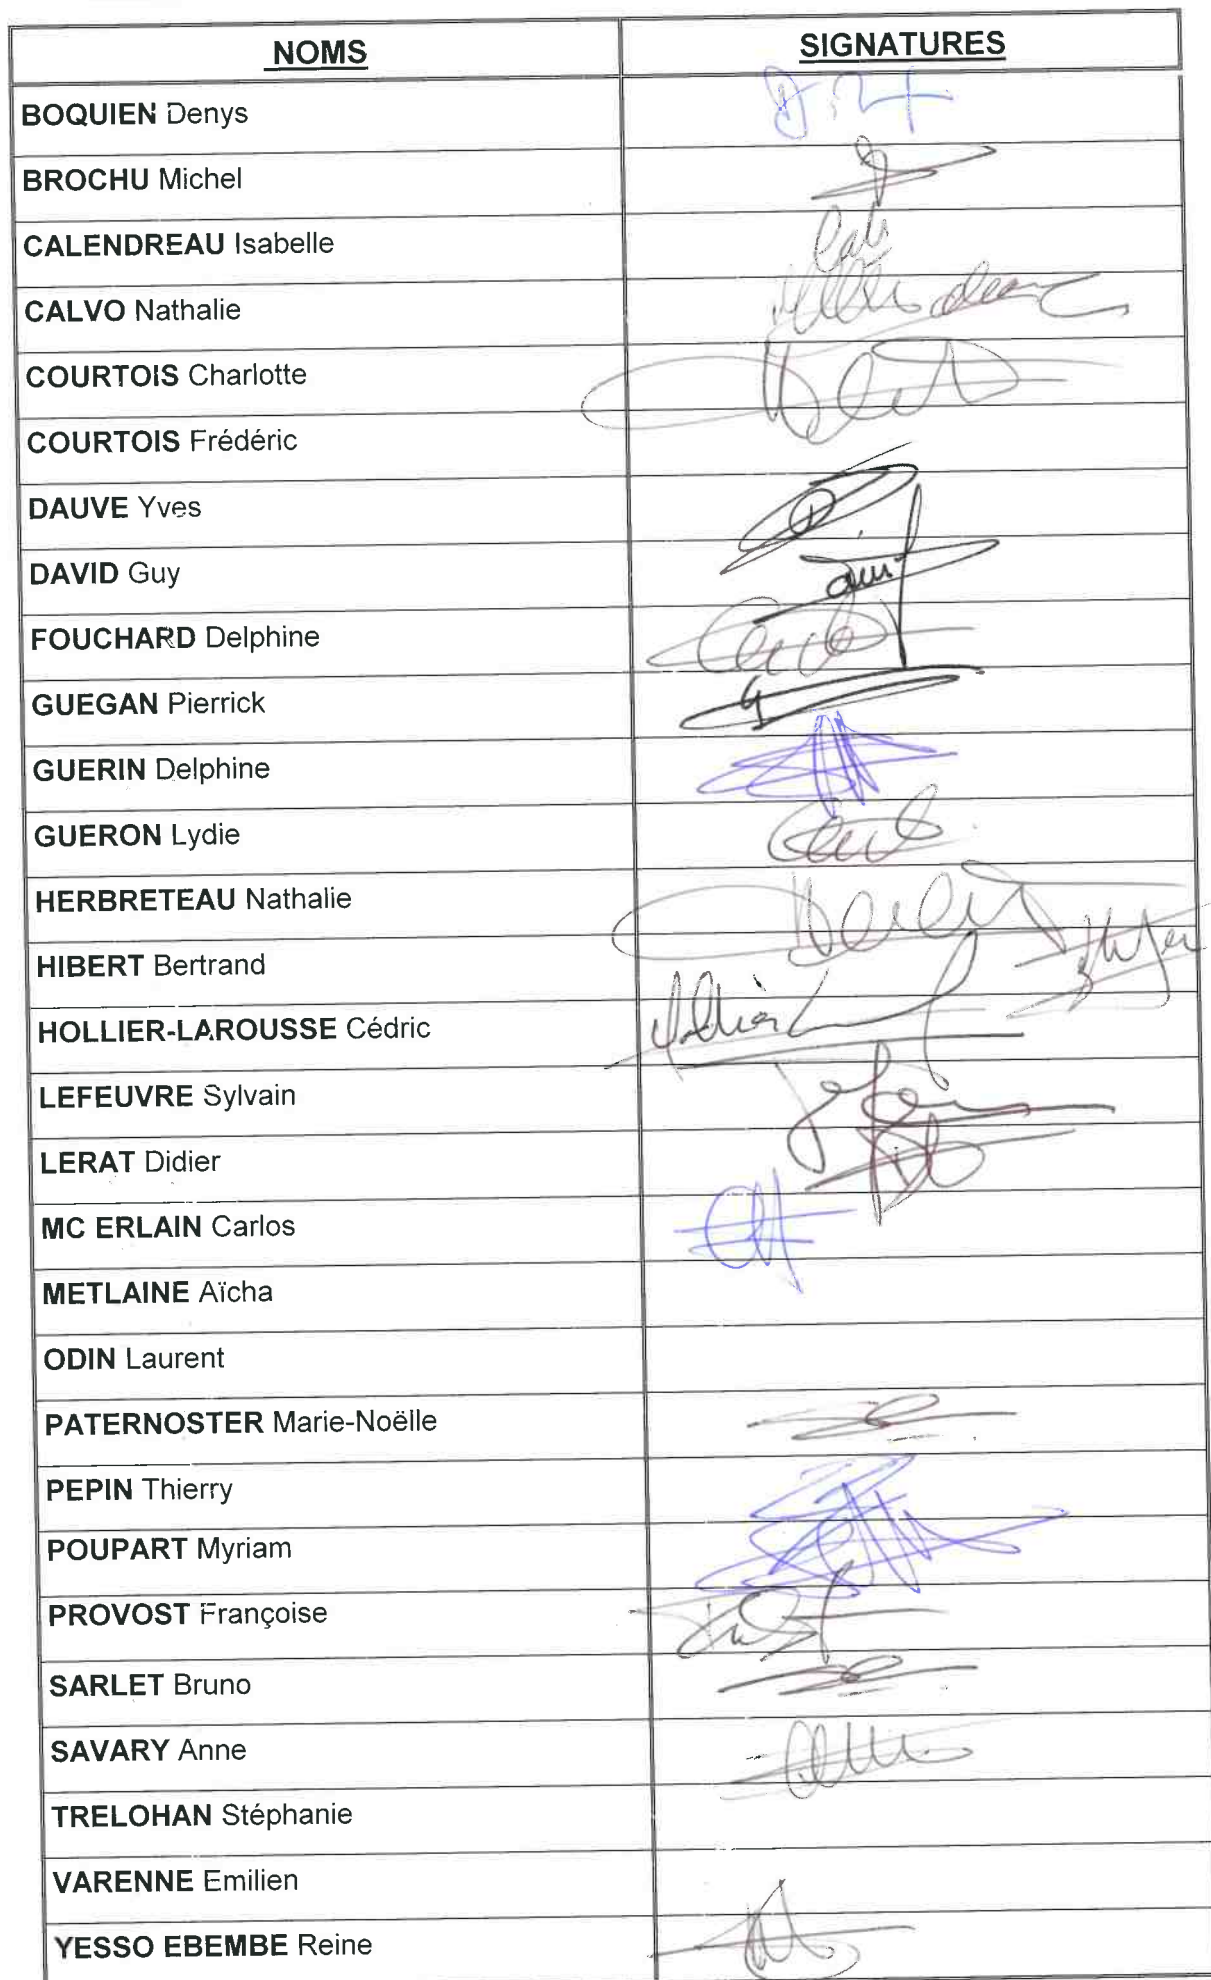 NOMS SIGNATURES
BOQUIEN Denys
BROCHU Michel
CALENDREAU Isabelle
CALVO Nathalie
COURTOIS Charlotte
COURTOIS Frédéric
DAUVE Yves
DAVID Guy
FOUCHARD Delphine
GUEGAN Pierrick
GUERIN Delphine
GUERON Lydie
HERBRETEAU Nathalie
HIBERT Bertrand
HOLLIER-LAROUSSE Cédric
LEFEUVRE Sylvain
LERAT Didier
MC ERLAIN Carlos
METLAINE Aïcha
ODIN Laurent
PATERNOSTER Marie-Noëlle
PEPIN Thierry
POUPART Myriam
PROVOST Françoise
SARLET Bruno
SAVARY Anne
TRELOHAN Stéphanie
VARENNE Emilien
YESSO EBEMBE Reine